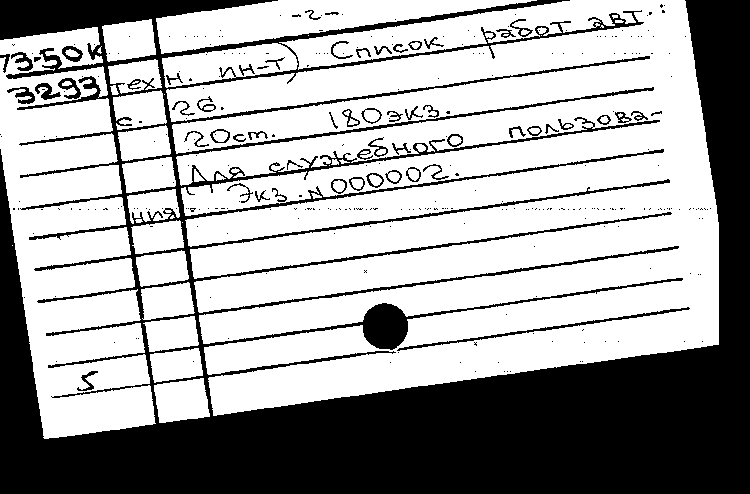 -2-
73-50к
3293
техн. ин-т) Список работ авт.:
с. 26.
20 cm. 180 экз.
Для служебного пользова-
ния. Экз. N 000002.
5